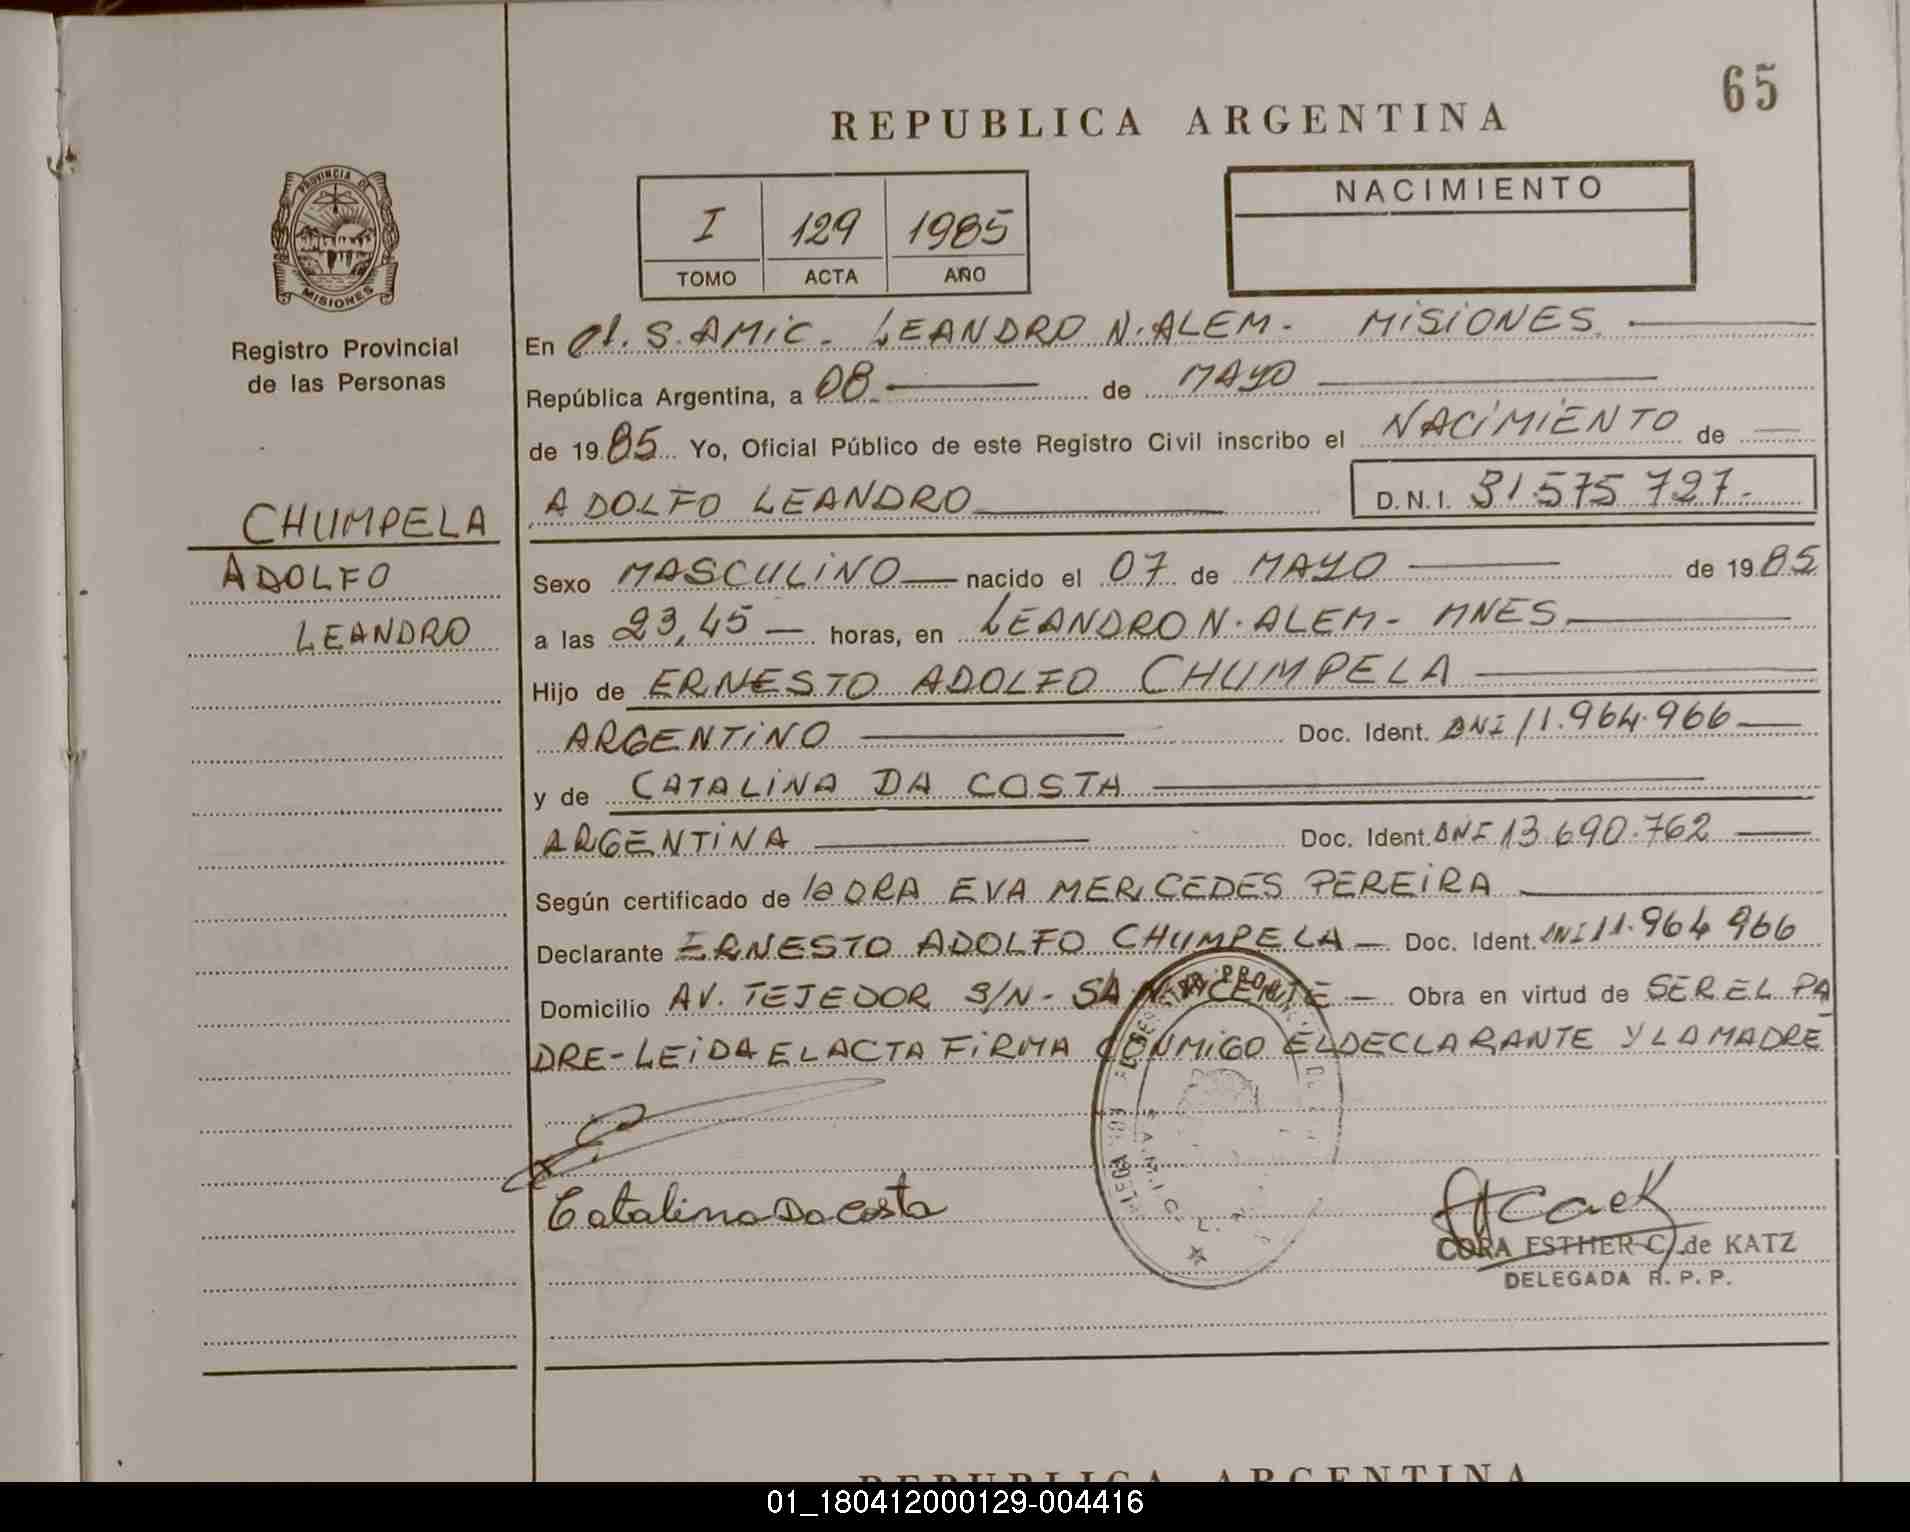 65
REPUBLICA ARGENTINA
PROVINCIA DE
MISIONES
Registro Provincial
de las Personas
I 129 1985
TOMO ACTA AÑO
NACIMIENTO
En el. S. AMIC. LEANDRO N. ALEM. MISIONES.
República Argentina, a 08 de MAYO
de 1985 Yo, Oficial Público de este Registro Civil inscribo el NACIMIENTO de
ADOLFO LEANDRO D.N.I. 31.575 727.
CHUMPELA
ADOLFO
LEANDRO
Sexo MASCULINO nacido el 07 de MAYO de 1985
a las 23,45 horas, en LEANDRO N. ALEM - MNES.
Hijo de ERNESTO ADOLFO CHUMPELA
ARGENTINO Doc. Ident. DNI 11.964.966
y de CATALINA DA COSTA
ARGENTINA Doc. Ident. DNI 13.690.762
Según certificado de la DRA EVA MERCEDES PEREIRA
Declarante ERNESTO ADOLFO CHUMPELA - Doc. Ident. DNI 11.964 966
Domicilio AV. TEJEDOR S/N - SAN VICENTE - Obra en virtud de SER EL PA
DRE - LEIDA EL ACTA FIRMA CONMIGO EL DECLARANTE Y LA MADRE
Catalina Da Costa
CORA ESTHER C. de KATZ
DELEGADA R. P. P.
REPUBLICA ARGENTINA
01_180412000129-004416